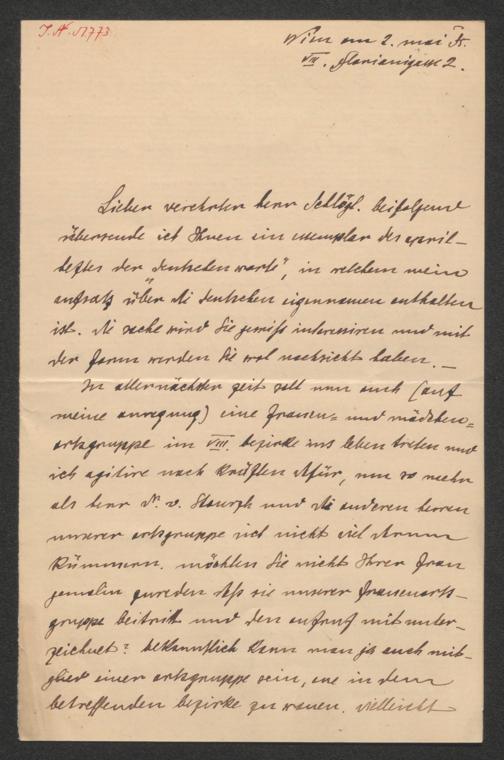 J.N. 51773
Wien am 2. mai
VIII. Florianigasse 2.
Lieber verehrter herr Schlögl. beifolgend
übersende ich Ihnen ein exemplar des april-
heftes der „deutschen warte", in welchem mein
aufsatz „über die deutschen eigennamen enthalten
ist. die sache wird Sie gewiss interessiren und mit
der form werden Sie wol nachsicht haben. —
In allernächster zeit soll nun auch (auf
meine anregung) eine frauen= und mädchen=
ortsgruppe im VIII. bezirke ins leben treten und
ich agitire nach kräften dafür, um so mehr
als herr Dr. v. und die anderen herren
unserer ortsgruppe sich nicht viel darum
kümmern. möchten Sie nicht Ihrer frau
gemalin zureden dass sie unserer frauenorts-
gruppe beitritt und den aufruf mitunter-
zeichnet? bekanntlich kann man ja auch mit-
glied einer ortsgruppe sein, one in dem
betreffenden bezirke zu wonen. vielleicht